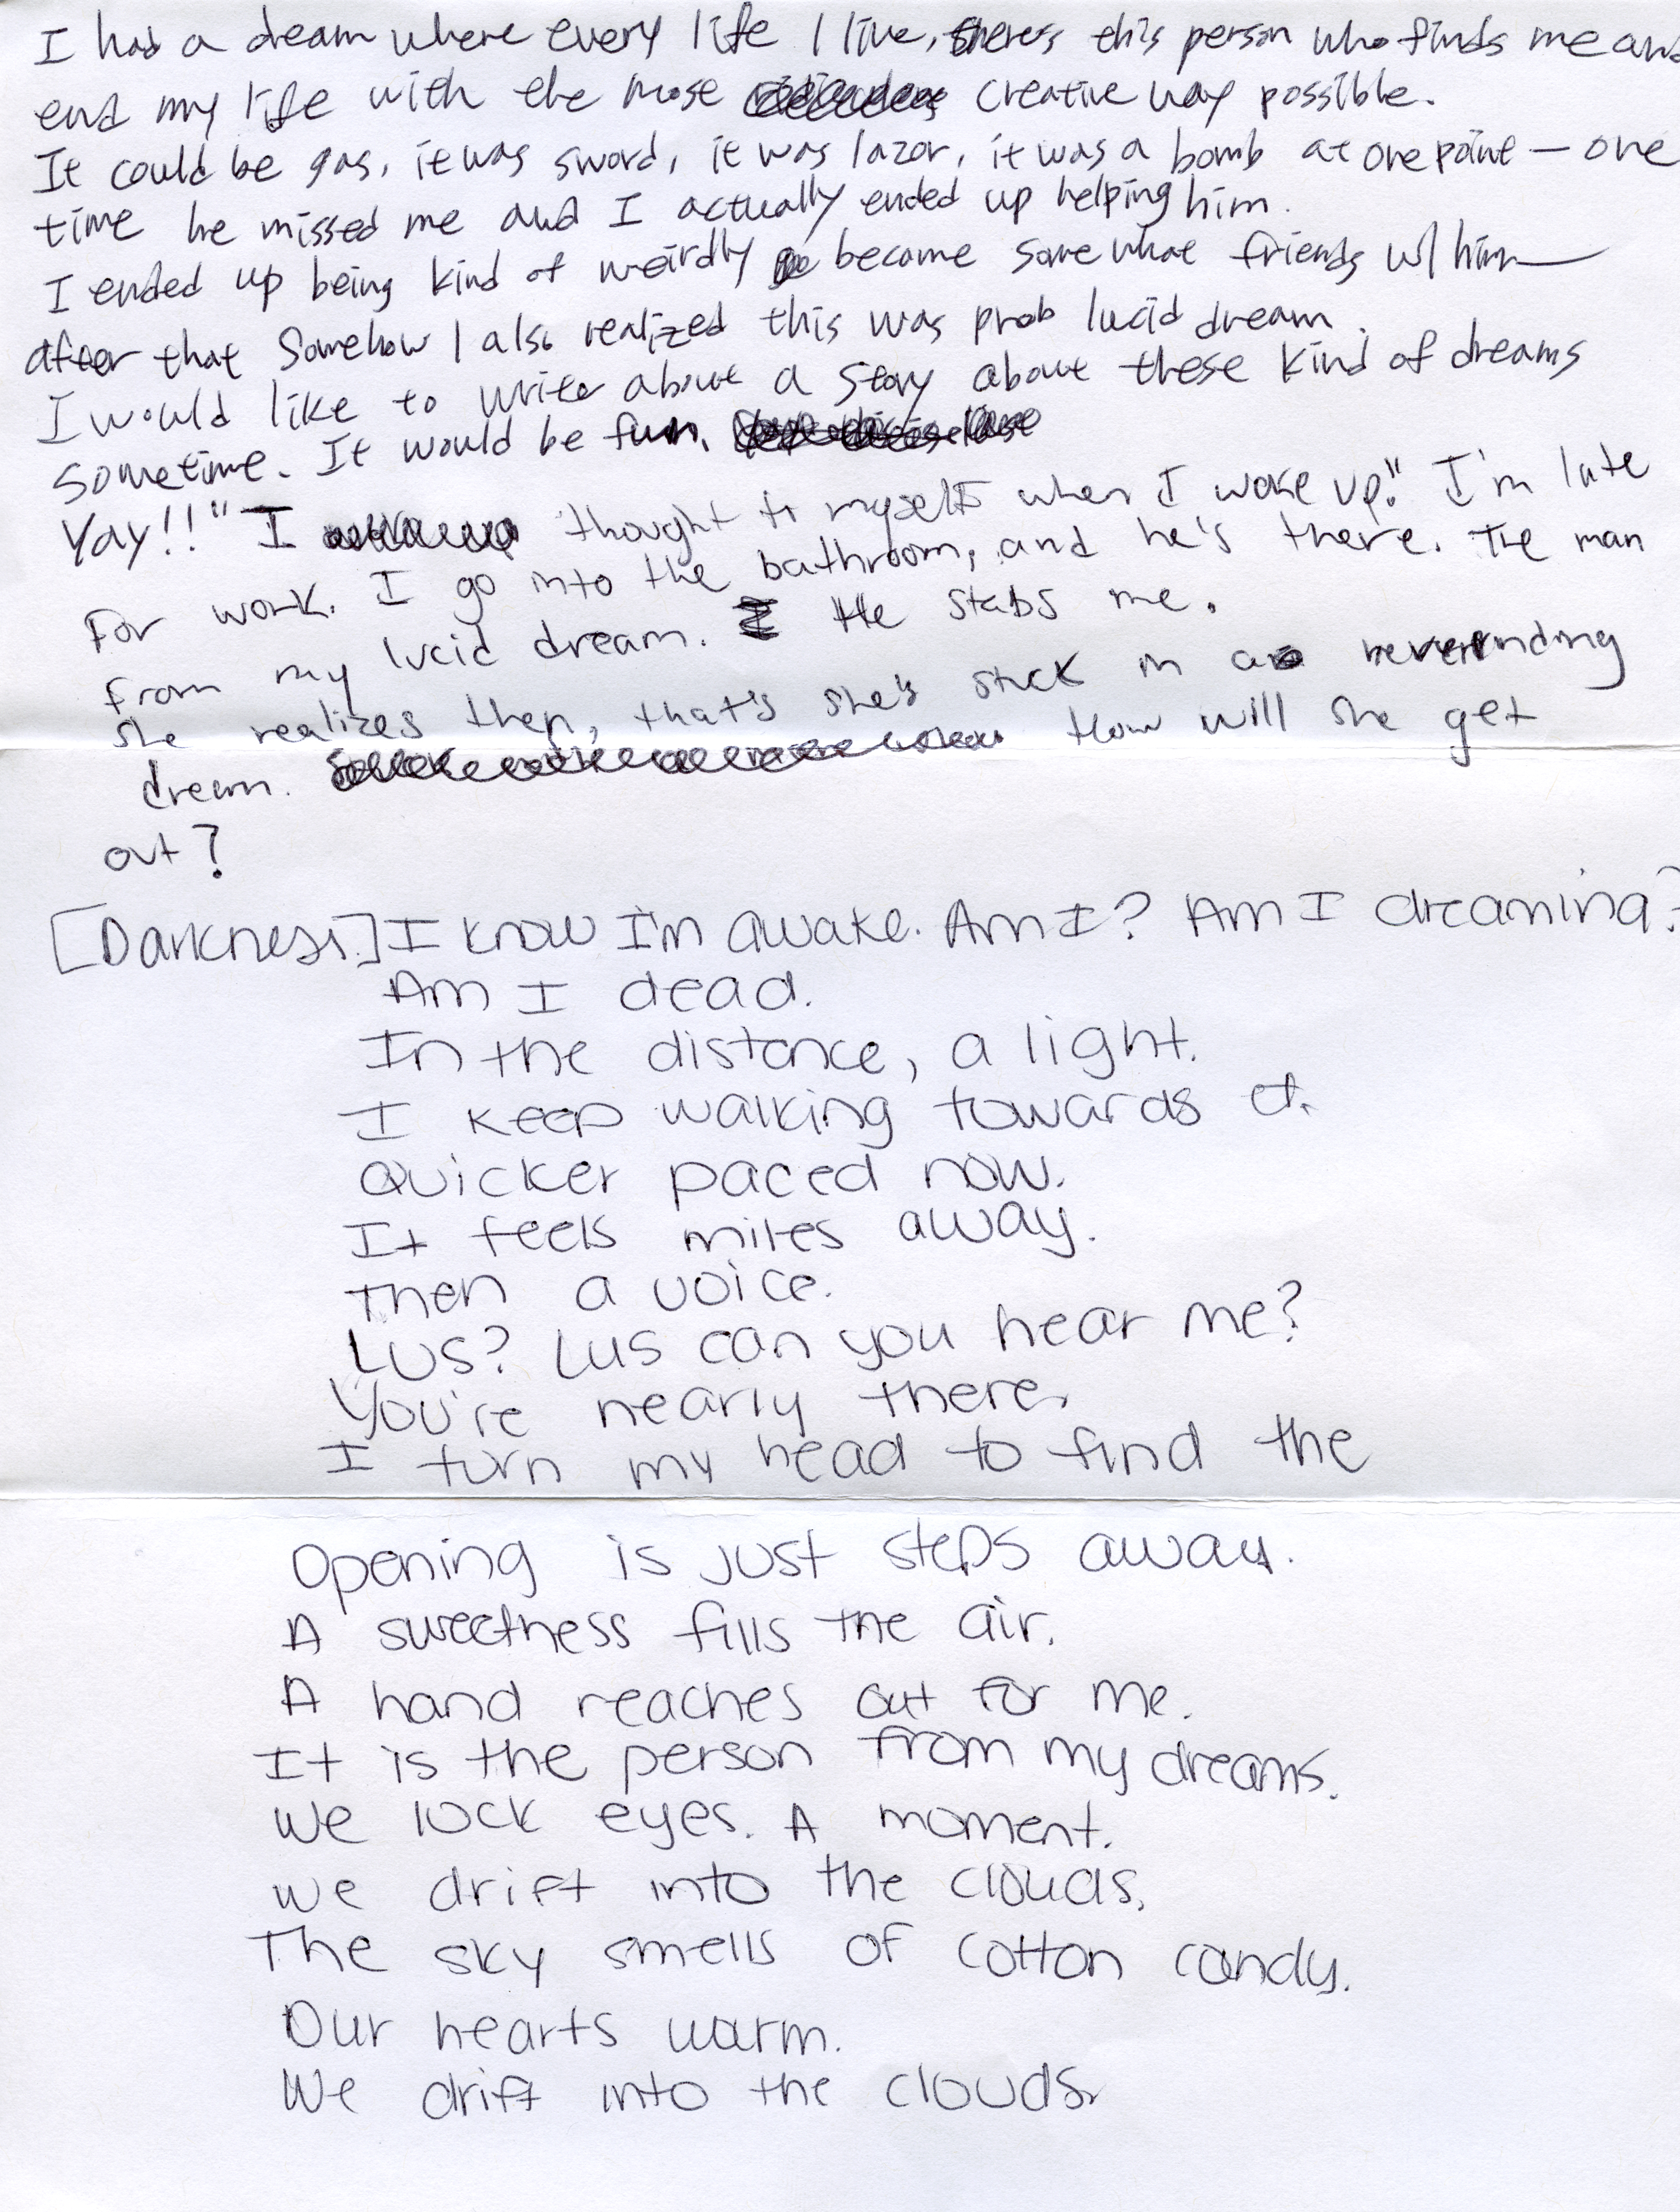 I had a dream where every life I live, theres this person who finds me and
end my life with the most creative way possible.
It could be gas, it was sword, it was lazor, it was a bomb at one point — one
time he missed me and I actually ended up helping him.
I ended up being kind of weirdly become somewhat friends w/ him
after that Somehow I also realized this was prob lucid dream.
I would like to write about a story about these kind of dreams
sometime. It would be fun.
Yay!!" I thought to myself when I woke up." I'm late
for work. I go into the bathroom, and he's there. The man
from my lucid dream. He stabs me.
She realizes then, that's she's stuck in a neverending
dream. How will she get
out?
[Darkness.] I know I'm awake. Am I? Am I dreaming?
Am I dead.
In the distance, a light.
I keep walking towards it.
Quicker paced now.
It feels miles away.
Then a voice.
LUS? Lus can you hear me?
You're nearly there.
I turn my head to find the
Opening is just steps away.
A sweetness fills the air.
A hand reaches out for me.
It is the person from my dreams.
We lock eyes. A moment.
We drift into the clouds.
The sky smells of cotton candy.
Our hearts warm.
We drift into the clouds.